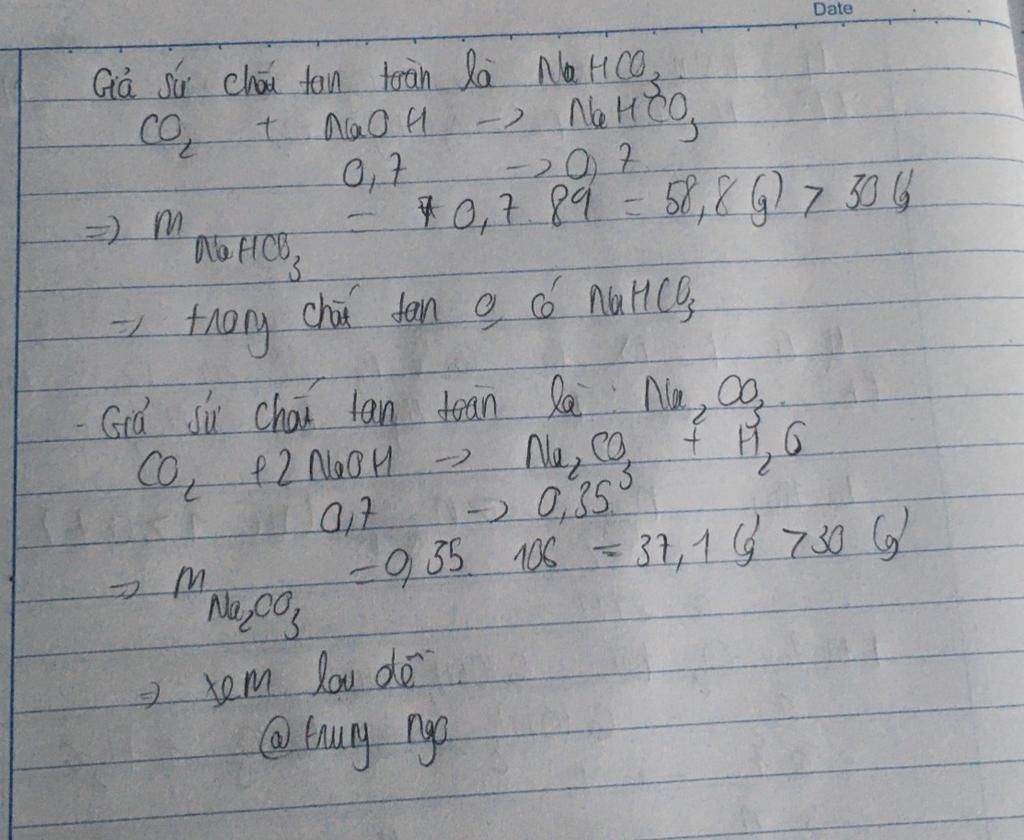 Date
Giả sử chất tan toàn là NaHCO₃
CO₂ + NaOH -> NaHCO₃
0,7 -> 0,7
=> m NaHCO₃ = 0,7 . 84 = 58,8 (g) > 30 g
=> trong chất tan o có NaHCO₃
- Giả sử chất tan toàn là : Na₂CO₃.
CO₂ + 2NaOH -> Na₂CO₃ + H₂O
0,7 -> 0,35
=> m Na₂CO₃ = 0,35 . 106 = 37,1 (g) > 30 (g)
=> xem lại đề
@trung ngo